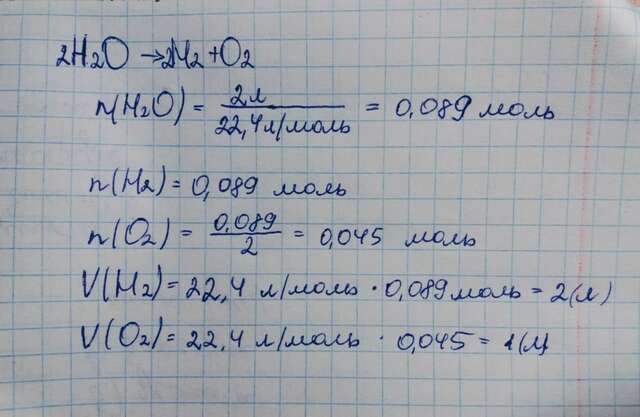 2H2O → 2H2 + O2
n(H2O) = 2л / 22,4 л/моль = 0,089 моль
n(H2) = 0,089 моль
n(O2) = 0,089 / 2 = 0,045 моль
V(H2) = 22,4 л/моль · 0,089 моль = 2(л)
V(O2) = 22,4 л/моль · 0,045 = 1(л)